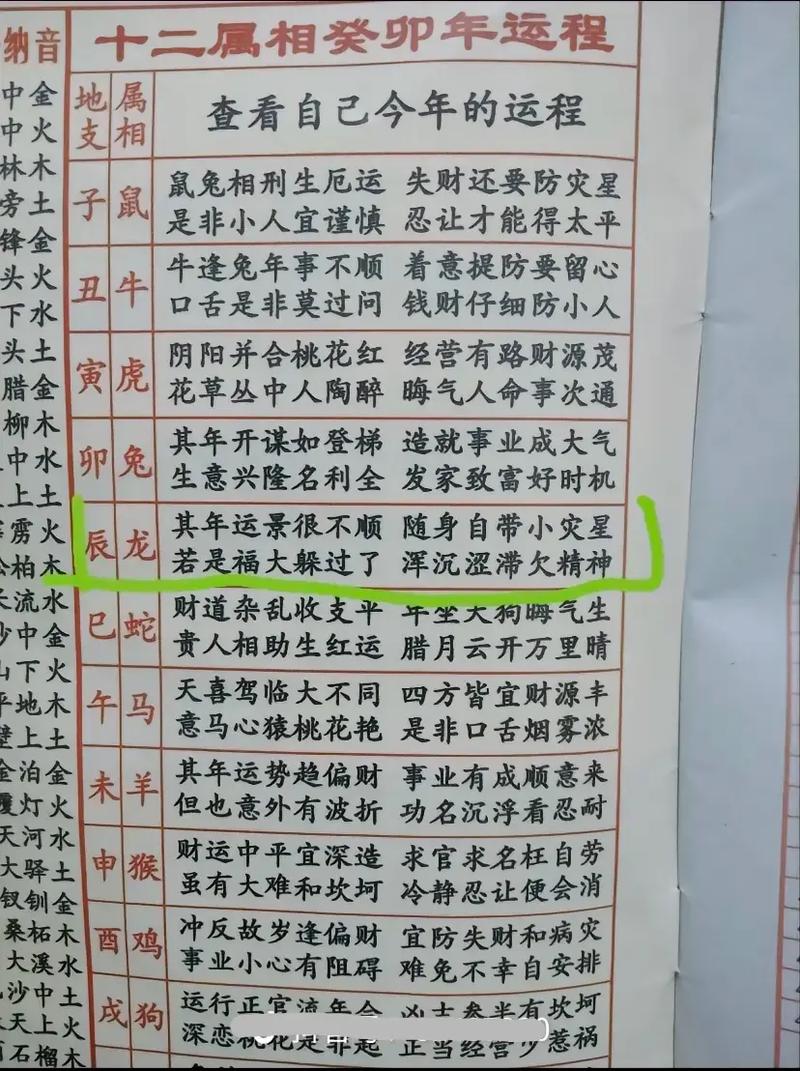 纳音
中金
中火
林木
旁土
锋金
头火
下水
头土
腊金
柳木
中水
上土
雳火
柏木
流水
中金
下火
地木
上土
金泊金
灯火
天河水
大驿土
钗钏金
桑柘木
大溪水
沙中土
天上火
石榴木
十二属相癸卯年运程
地支 属相 查看自己今年的运程
子 鼠
鼠兔相刑生厄运 失财还要防灾星
是非小人宜谨慎 忍让才能得太平
丑 牛
牛逢兔年事不顺 着意提防要留心
口舌是非莫过问 钱财仔细防小人
寅 虎
阴阳并合桃花红 经营有路财源茂
花草丛中人陶醉 晦气人命事次通
卯 兔
其年开谋如登梯 造就事业成大气
生意兴隆名利全 发家致富好时机
辰 龙
其年运景很不顺 随身自带小灾星
若是福大躲过了 浑沉涩滞欠精神
巳 蛇
财道杂乱收支平 年坐天狗晦气生
贵人相助生红运 腊月云开万里晴
午 马
天喜驾临大不同 四方皆宜财源丰
意马心猿桃花艳 是非口舌烟雾浓
未 羊
其年运势趋偏财 事业有成顺意来
但也意外有波折 功名沉浮看忍耐
申 猴
财运中平宜深造 求官求名枉自劳
虽有大难和坎坷 冷静忍让便会消
酉 鸡
冲反故岁逢偏财 宜防失财和病灾
事业小心有阻碍 难免不幸自安排
戌 狗
运行正官流年合 凶吉参半有坎坷
深恋桃花是非起 正当经营少惹祸